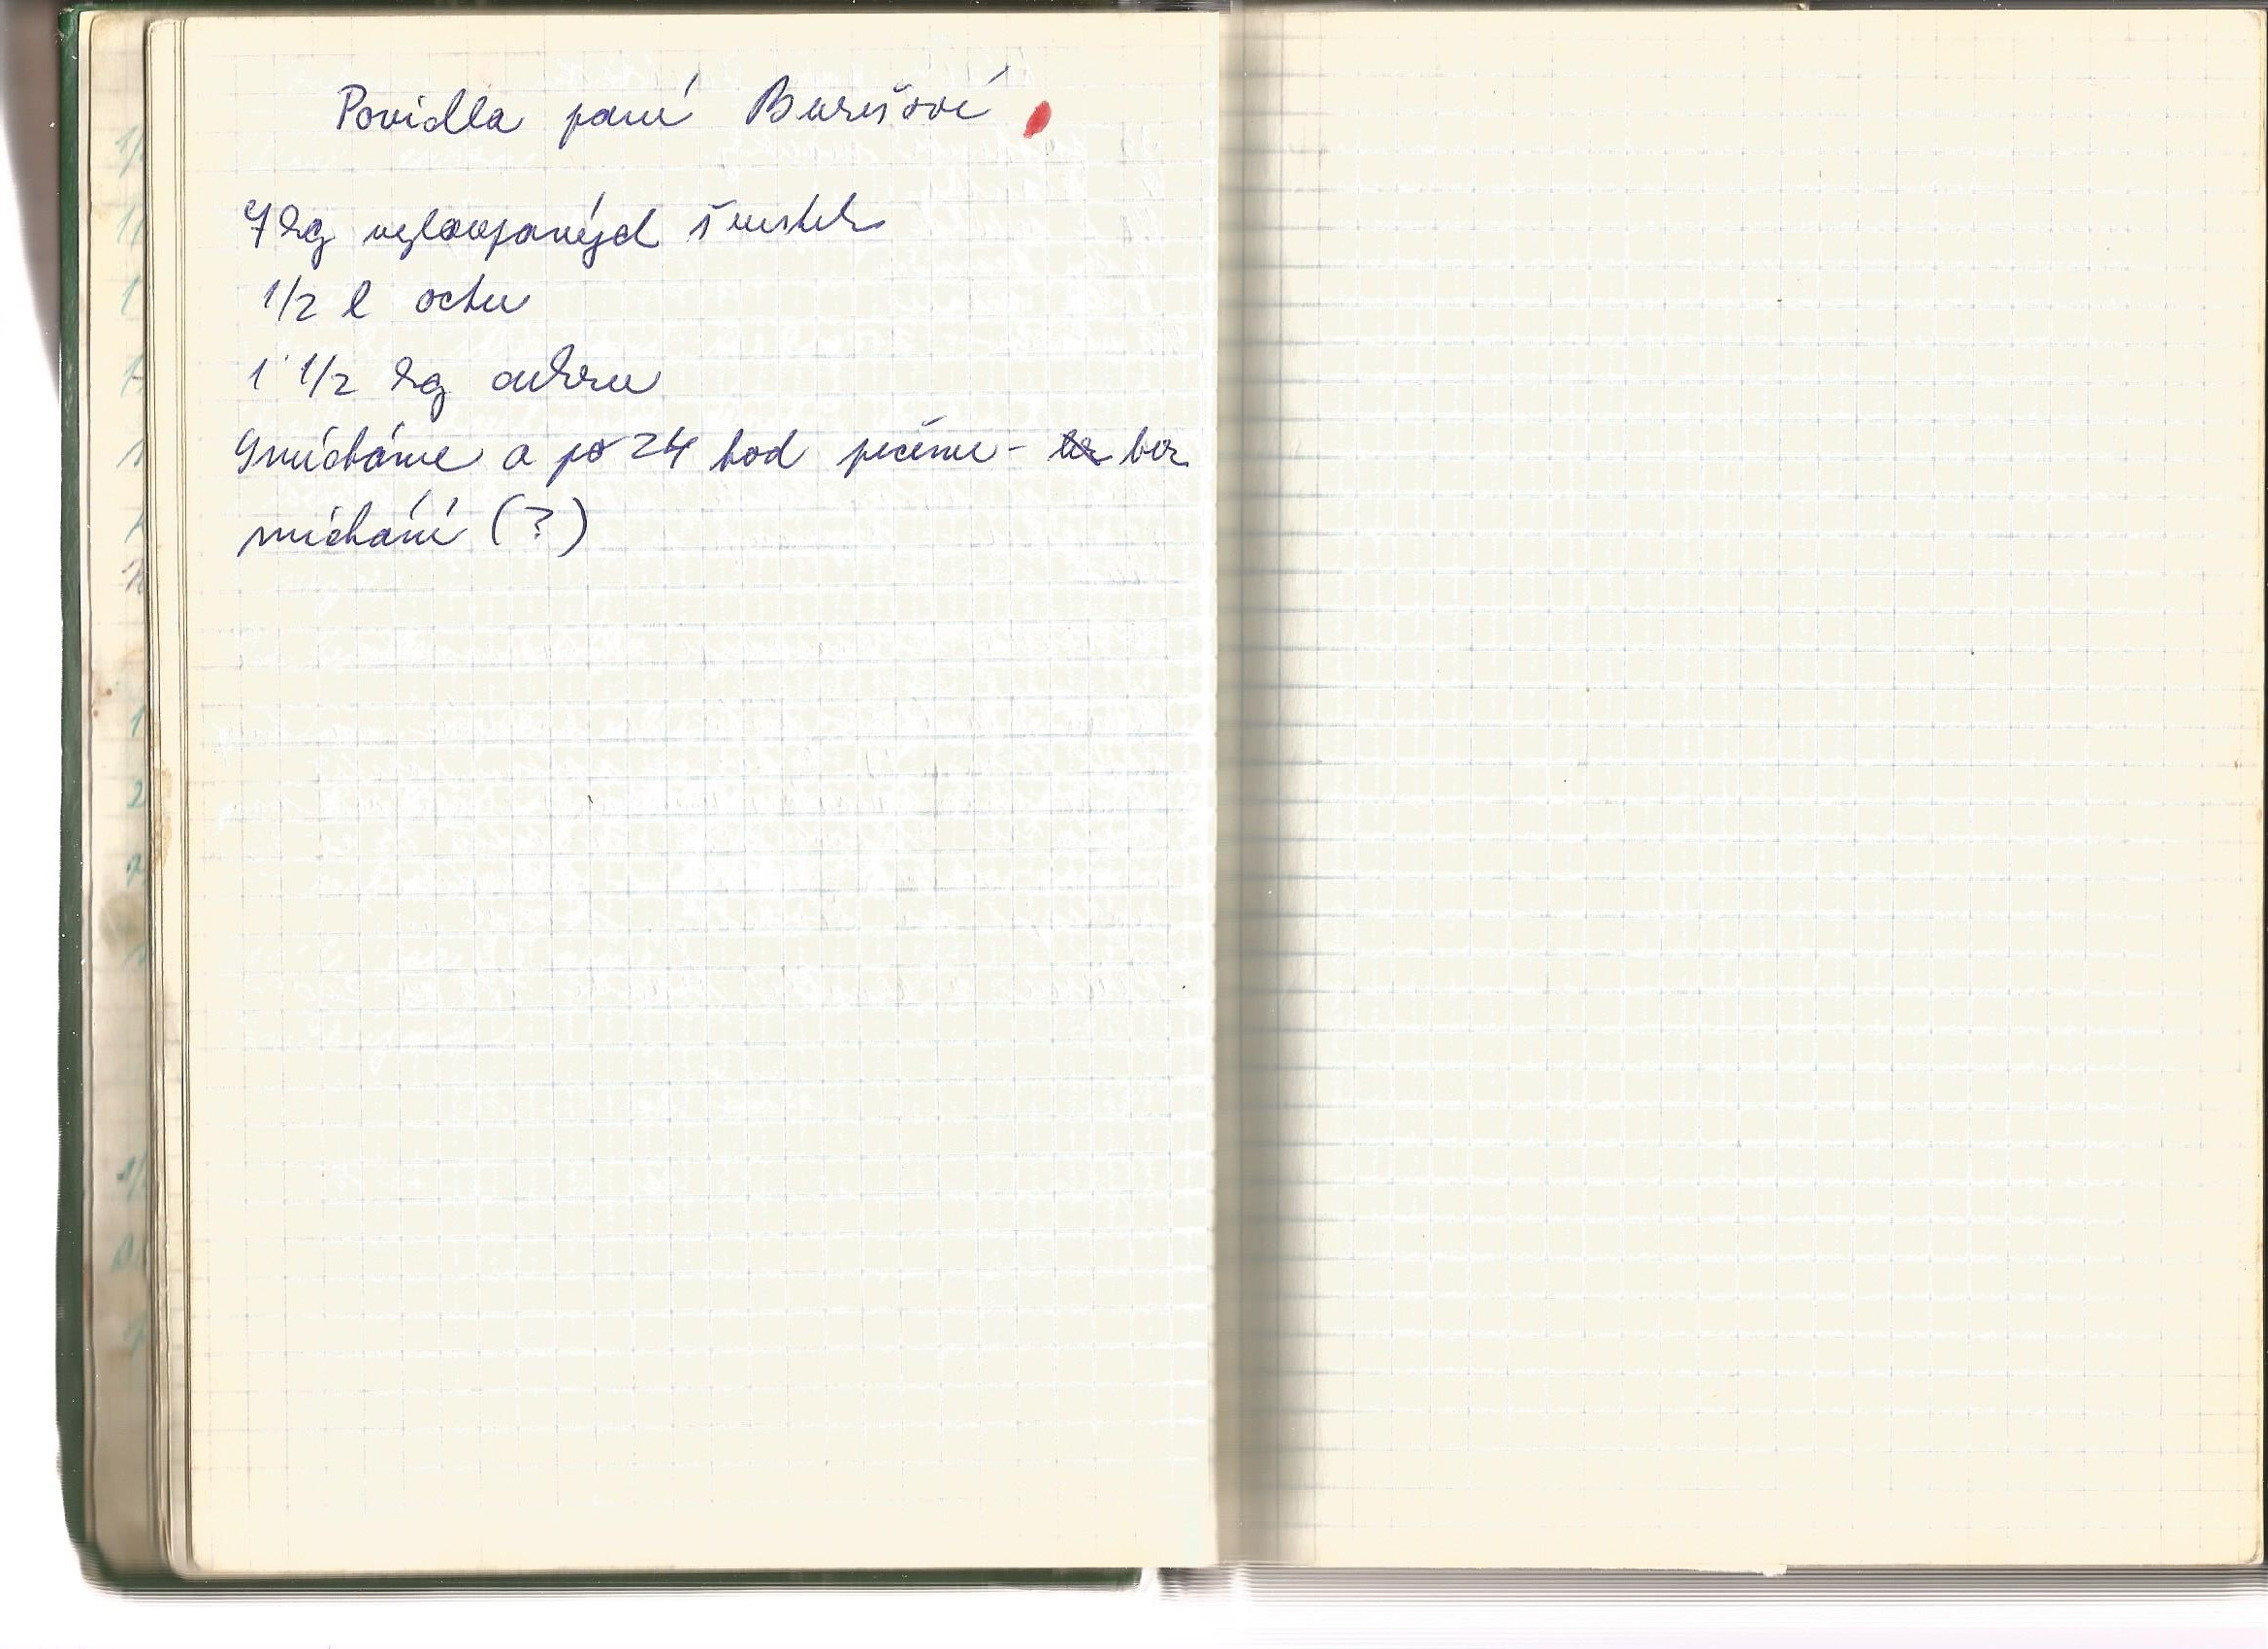 Povidla paní Burešové
7 kg vyloupaných švestek
1/2 l octu
1 1/2 kg cukru
Smícháme a po 24 hod pečeme - bez
míchání (?)